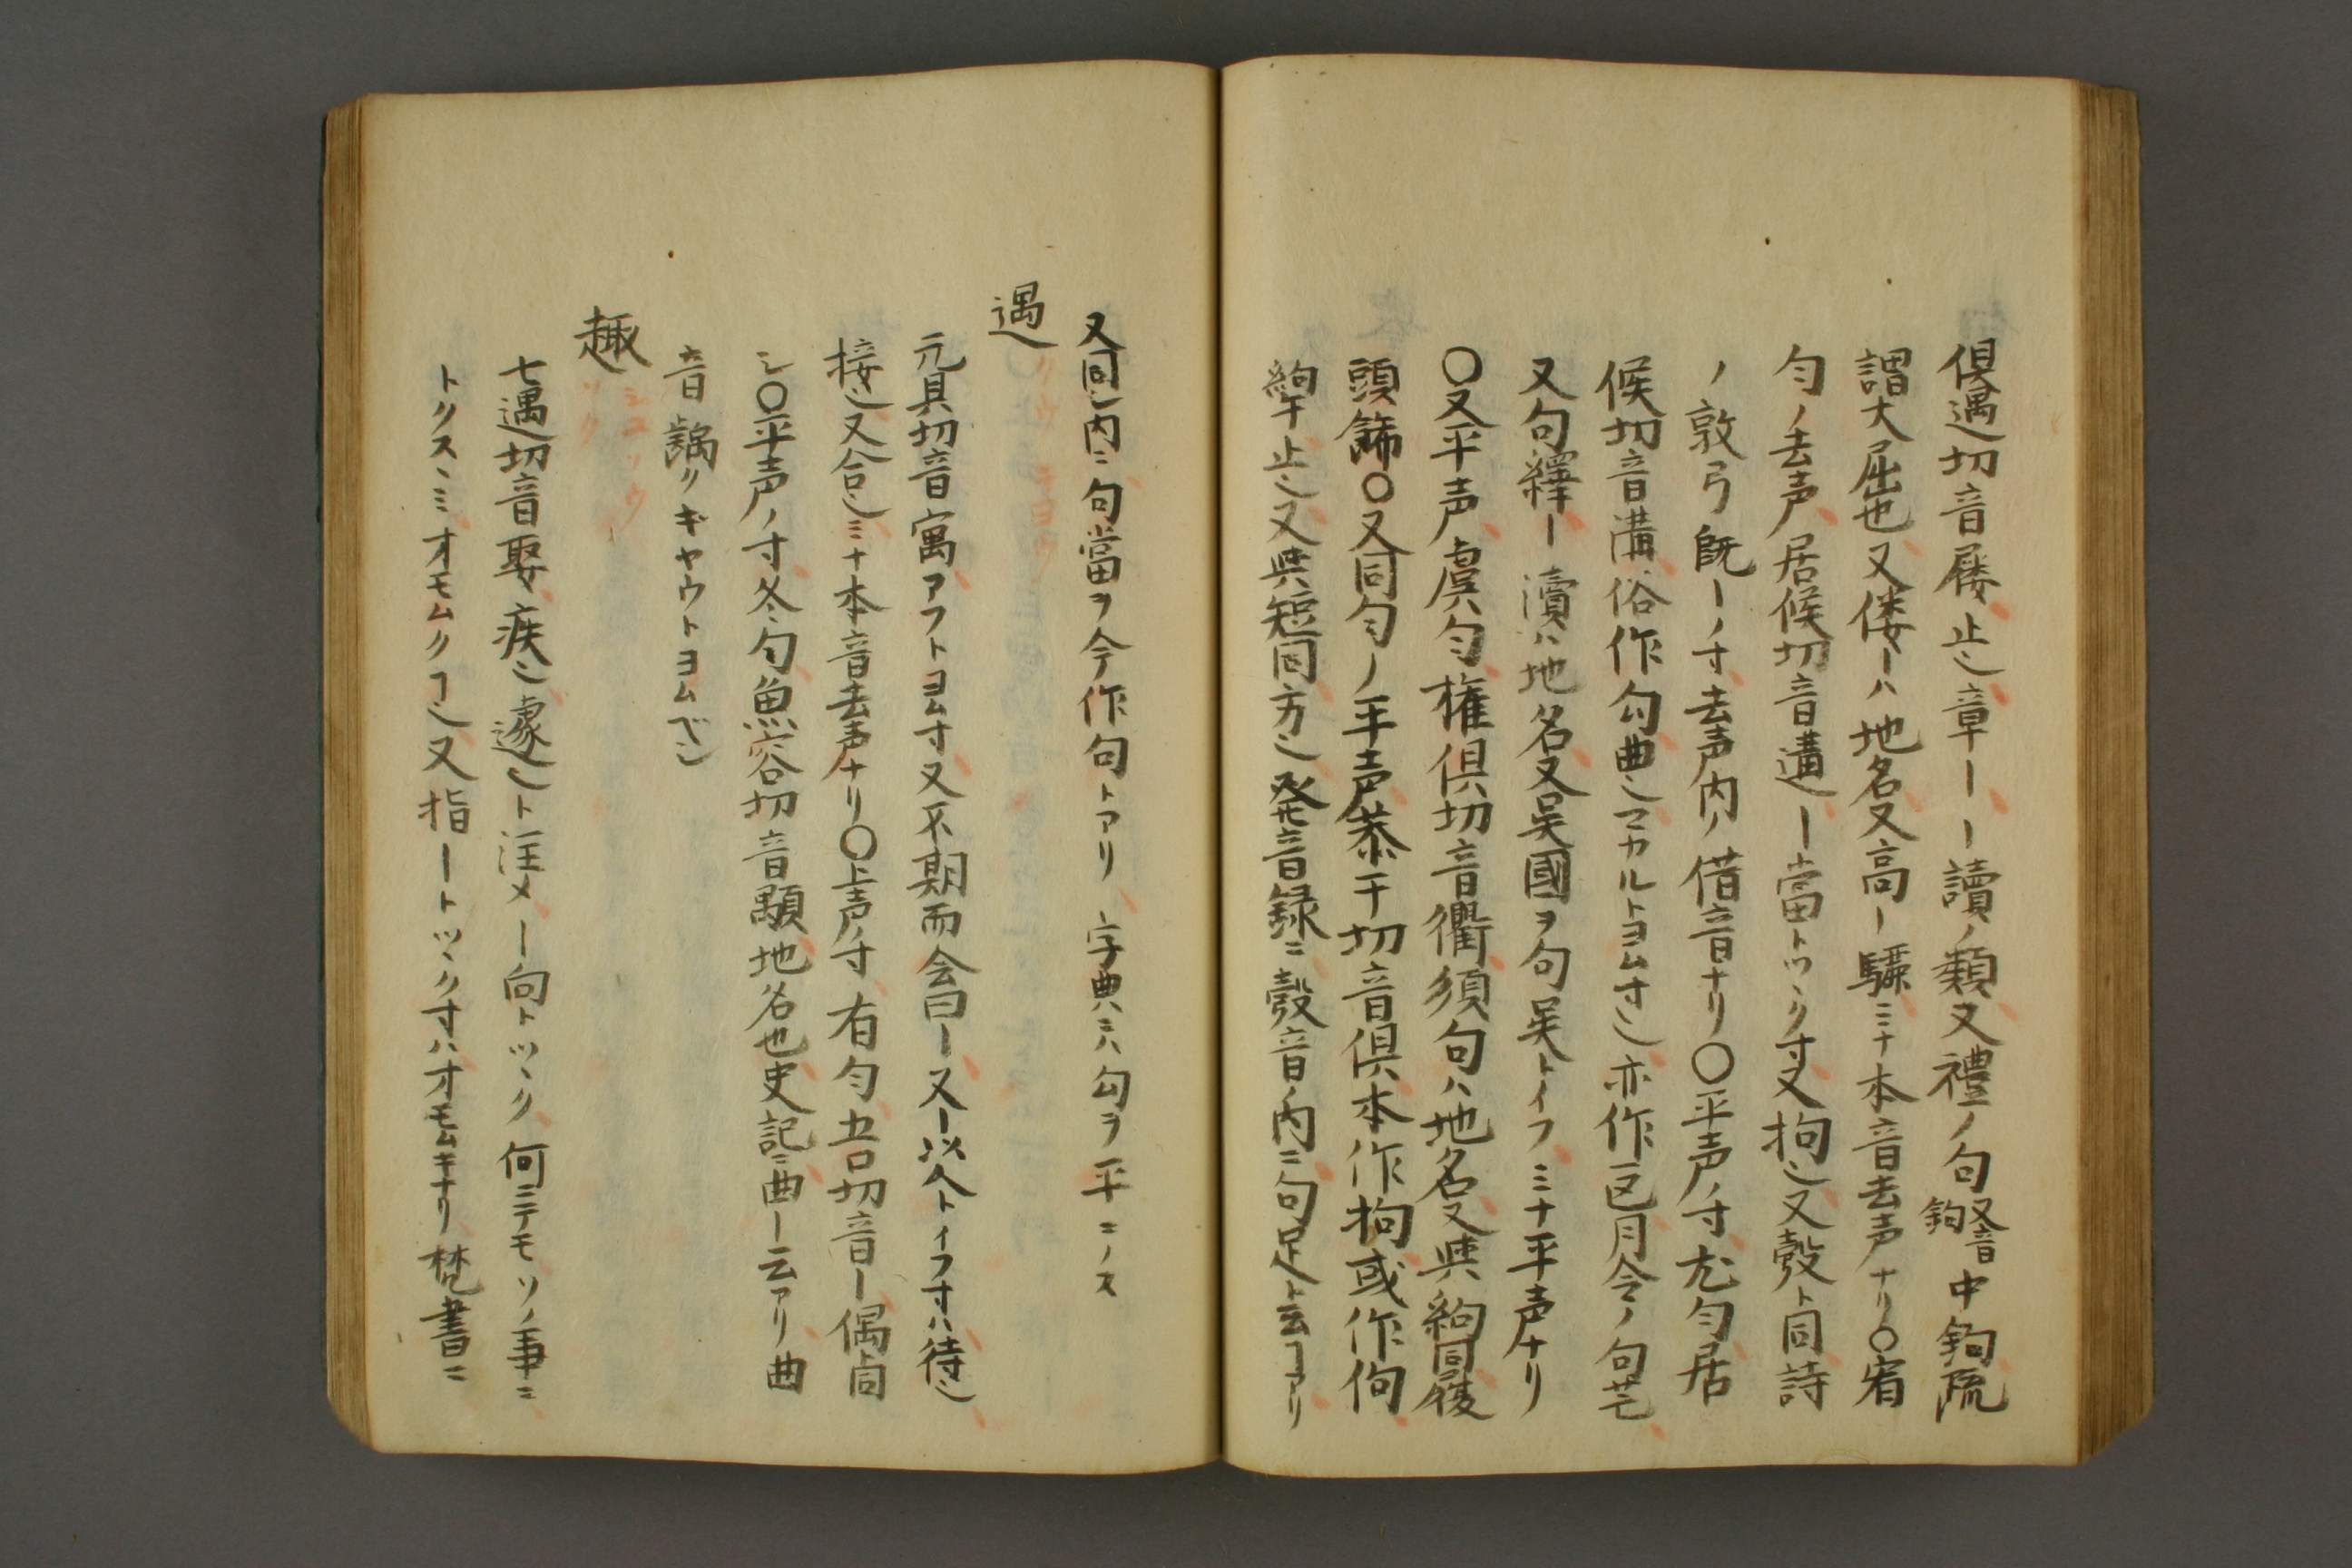 倶遇切音屨止〻章ーー讀ノ類又禮ノ句又音鉤中鉤疏
謂大屈也又倭ーハ地名又高ー驪ミナ本音去声ナリ〇宥
匀ノ去声居候切音遘ー當トツヾク寸又拘〻又彀ト同詩
ノ敦弓既ーノ寸去声内ノ借音ナリ〇平声ノ寸尤匀居
候切音溝俗作勾曲〻マカルトヨム寸〻亦作區月令ノ句芒
又句繹ー瀆ハ地名又吴國ヲ句吴トイフミナ平声ナリ
〇又平声虞匀権倶切音衢須句ハ地名又與絇同履
頭飾〇又同匀ノ平声恭于切音倶本作拘或作佝
絇于止〻又與短同方〻発音録ニ彀音ノ内ニ句足ト云ヿアリ
又同〻内ニ句當ヲ今作句トアリ字典ニハ勾ヲ平ニノス
遇
元具切音寓アフトヨム寸又不期而会曰ー又ー以人トイフ寸ハ待〻
接〻又合〻ミナ本音去声ナリ〇上声ノ寸有匀五口切音ー偶同
シ〇平声ノ寸冬匀魚容切音顒地名也史記ニ曲ー云アリ曲
音齲リキヤウトヨムベシ
趣
シユ
七遇切音娶疾〻遽〻ト注メー向トツヾク何ニテモソノ事ニ
トクスヽミオモムクヿ〻又指ートツヾク寸ハオモムキナリ梵書ニ